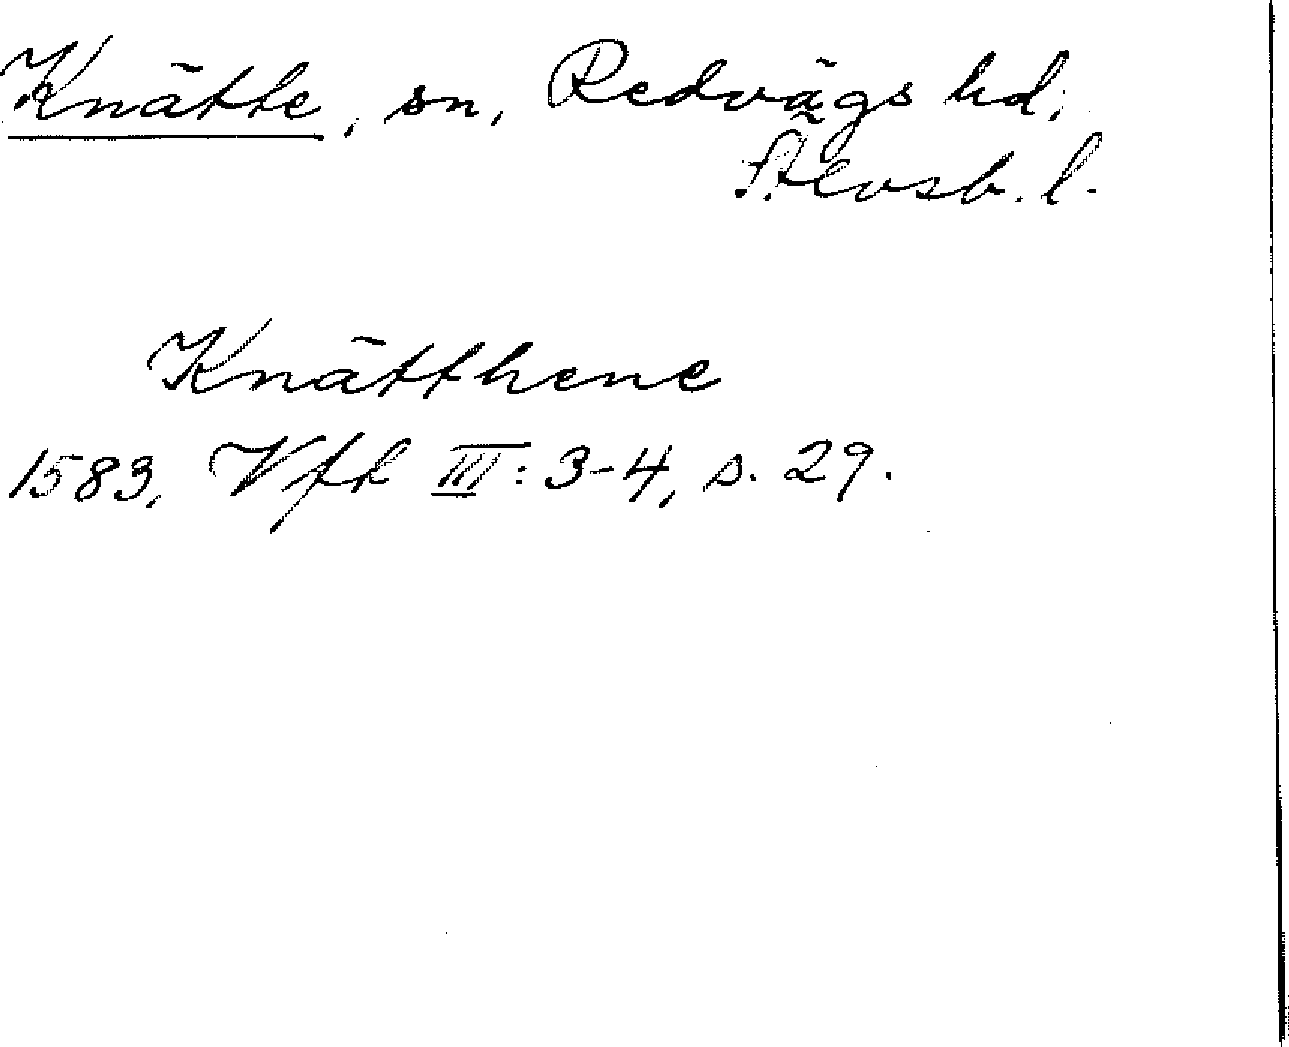 Knätte, sn, Redvägs hd,
Älvsb. l.
Knätthene
1583, Vfk III: 3-4, s. 29.